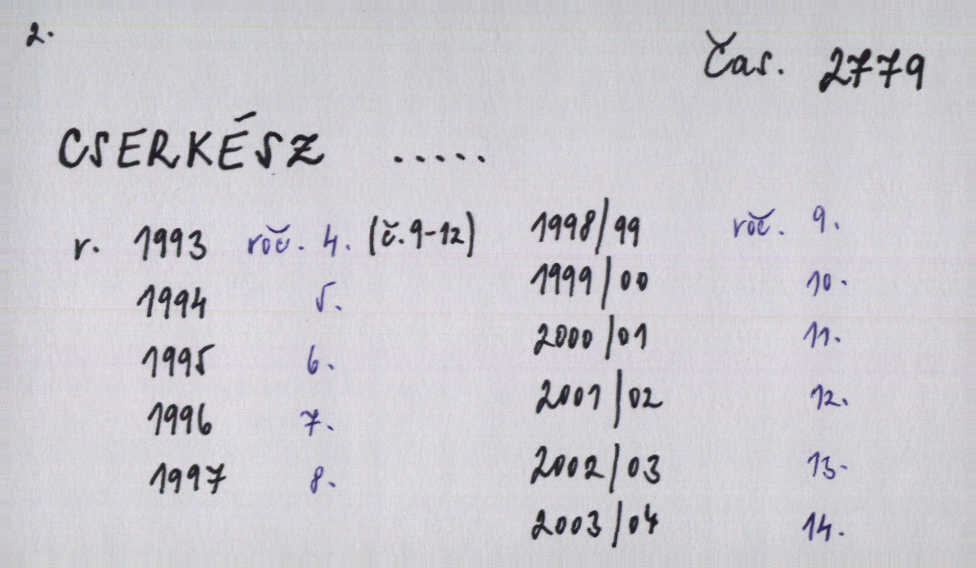 2.
Čas. 2779
CSERKÉSZ .....
r. 1993 roč. 4. (č. 9-12)
1994 5.
1995 6.
1996 7.
1997 8.
1998/99 roč. 9.
1999/00 10.
2000/01 11.
2001/02 12.
2002/03 13.
2003/04 14.